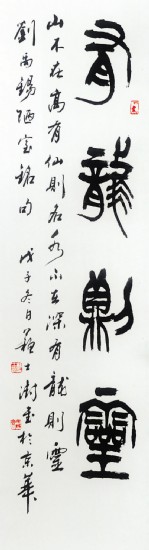 有龍則靈
山不在高有仙則名水不在深有龍則靈
劉禹錫陋室銘句 戊子冬日蘇士澍書於京華